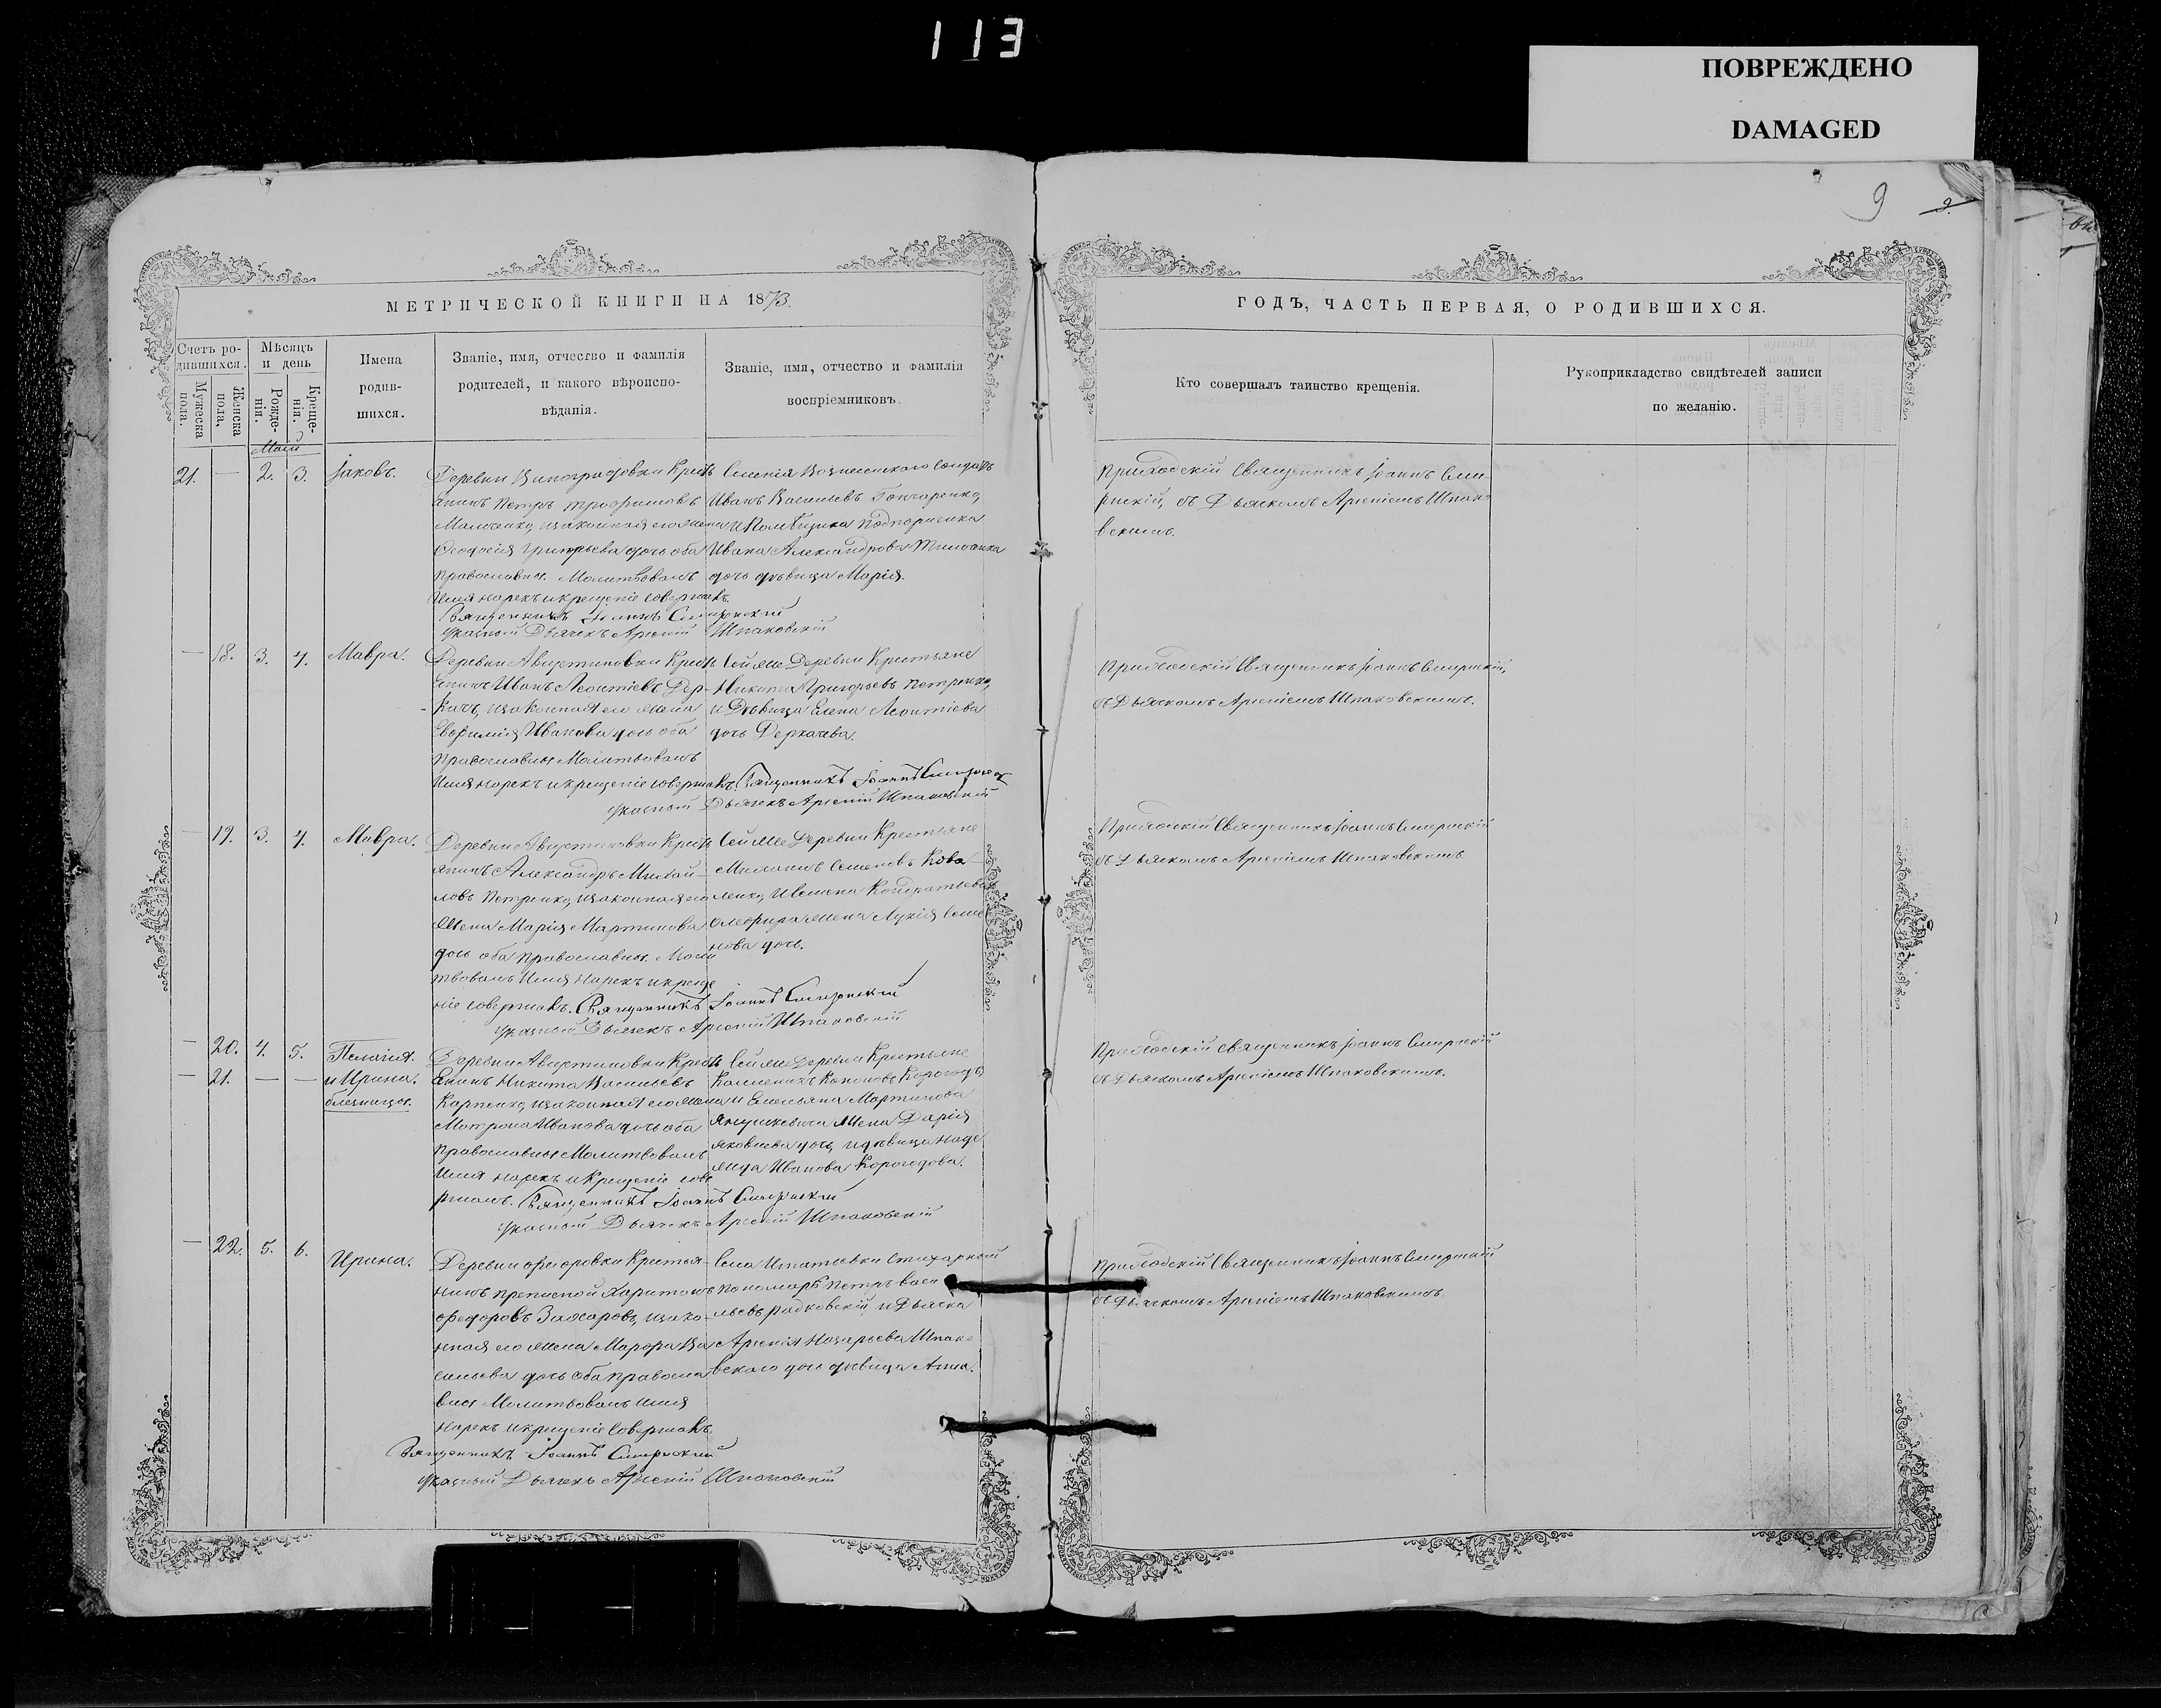 113
ПОВРЕЖДЕНО
DAMAGED
9
9.
МЕТРИЧЕСКОЙ КНИГИ НА 1873.
ГОДЪ, ЧАСТЬ ПЕРВАЯ, О РОДИВШИХСЯ.
Счетъ ро-
дившихся.
Мужеска
пола.
Женска
пола.
Мѣсяцъ
и день
Рожде-
нія.
Креще-
нія.
Имена
родив-
шихся.
Званіе, имя, отчество и фамилія
родителей, и какого вѣроиспо-
вѣданія.
Званіе, имя, отчество и фамилія
воспріемниковъ.
Кто совершалъ таинство крещенія.
Рукоприкладство свидѣтелей записи
по желанію.
Май
21. — 2. 3. Іаковъ.
Деревни Виноградовки Крест
янинъ Петръ Трофимовъ
законная его жена
Феодосія Григорьева дочь оба
православны. Молитвовалъ
Имя нарекъ и крещеніе совершалъ.
Священникъ Іоаннъ Смирнскій
Указный Дьячекъ Арсеній Шпаковскій
Селенія Вознесенскаго Солдатъ
Иванъ Васильевъ Гончаренко,
и Помѣщика Подпоручика
Ивана Александрова
дочь дѣвица Марія.
Приходскій Священникъ Іоаннъ Сми-
рнскій, съ Дьячкомъ Арсеніемъ Шпако-
вскимъ.
— 18. 3. 4. Мавра.
Деревни Августиновки Крест
янинъ Иванъ Леонтіевъ Дер-
качъ, и законная его жена
Евфимія Иванова дочь оба
православны Молитвовалъ
Имя нарекъ и крещеніе совершалъ. Священникъ Іоаннъ Смирнскій
Указный Дьячекъ Арсеній Шпаковскій
Сей же Деревни Крестьяне
Никита Григорьевъ Петренко,
и Дѣвица Елена Леонтіева
дочь Деркачева.
Приходскій Священникъ Іоаннъ Смирнскій,
съ Дьячкомъ Арсеніемъ Шпаковскимъ.
— 19. 3. 4. Мавра.
Деревни Августиновки Крест
янинъ Александръ Михай-
ловъ Петренко, и законная его
жена Марія Мартинова
дочь оба православны. Моли
твовалъ Имя нарекъ и креще
ніе совершалъ. Священникъ Іоаннъ Смирнскій
Указный Дьячекъ Арсеній Шпаковскій
Сей же Деревни Крестьяне
Семеновъ Кова
ленко, Кондратьева
жена Лукія Семе
нова дочь.
Приходскій Священникъ Іоаннъ Смирнскій
съ Дьячкомъ Арсеніемъ Шпаковскимъ
— 20. 4. 5. Пелагія.
— 21. — — и Ирина.
близнецы.
Деревни Августиновки Крест
янинъ Никита Васильевъ
Карпенко, и законная его жена
Матрона Иванова дочь оба
православны Молитвовалъ
Имя нарекъ и Крещеніе сове
ршалъ. Священникъ Іоаннъ Смирнскій
Указный Дьячекъ Арсеній Шпаковскій
Сей же Деревни Крестьяне
Кононовъ Корогодъ,
и Емельяна Мартинова
Янушкевича жена Дарія
Яковлева дочь, и дѣвица Наде
жда Иванова Корогодова.
Приходскій священникъ Іоаннъ Смирнскій
съ Дьячкомъ Арсеніемъ Шпаковскимъ.
— 22. 5. 6. Ирина.
Деревни Федоровки Крестья-
нинъ Харитонъ
Федоровъ Захаровъ, и зако-
нная его жена Марфа Ва
сильева дочь оба правосла
вны Молитвовалъ имя
нарекъ и крещеніе Совершалъ.
Священникъ Іоаннъ Смирнскій
Указный Дьячекъ Арсеній Шпаковскій
Села Игнатьевки Стихарный
Пономарь Петръ Васи
льевъ Радковскій, и Дьячка
Арсенія Назарьева Шпако
вскаго дочь дѣвица Анна.
Приходскій Священникъ Іоаннъ Смирнскій
съ Дьячкомъ Арсеніемъ Шпаковскимъ